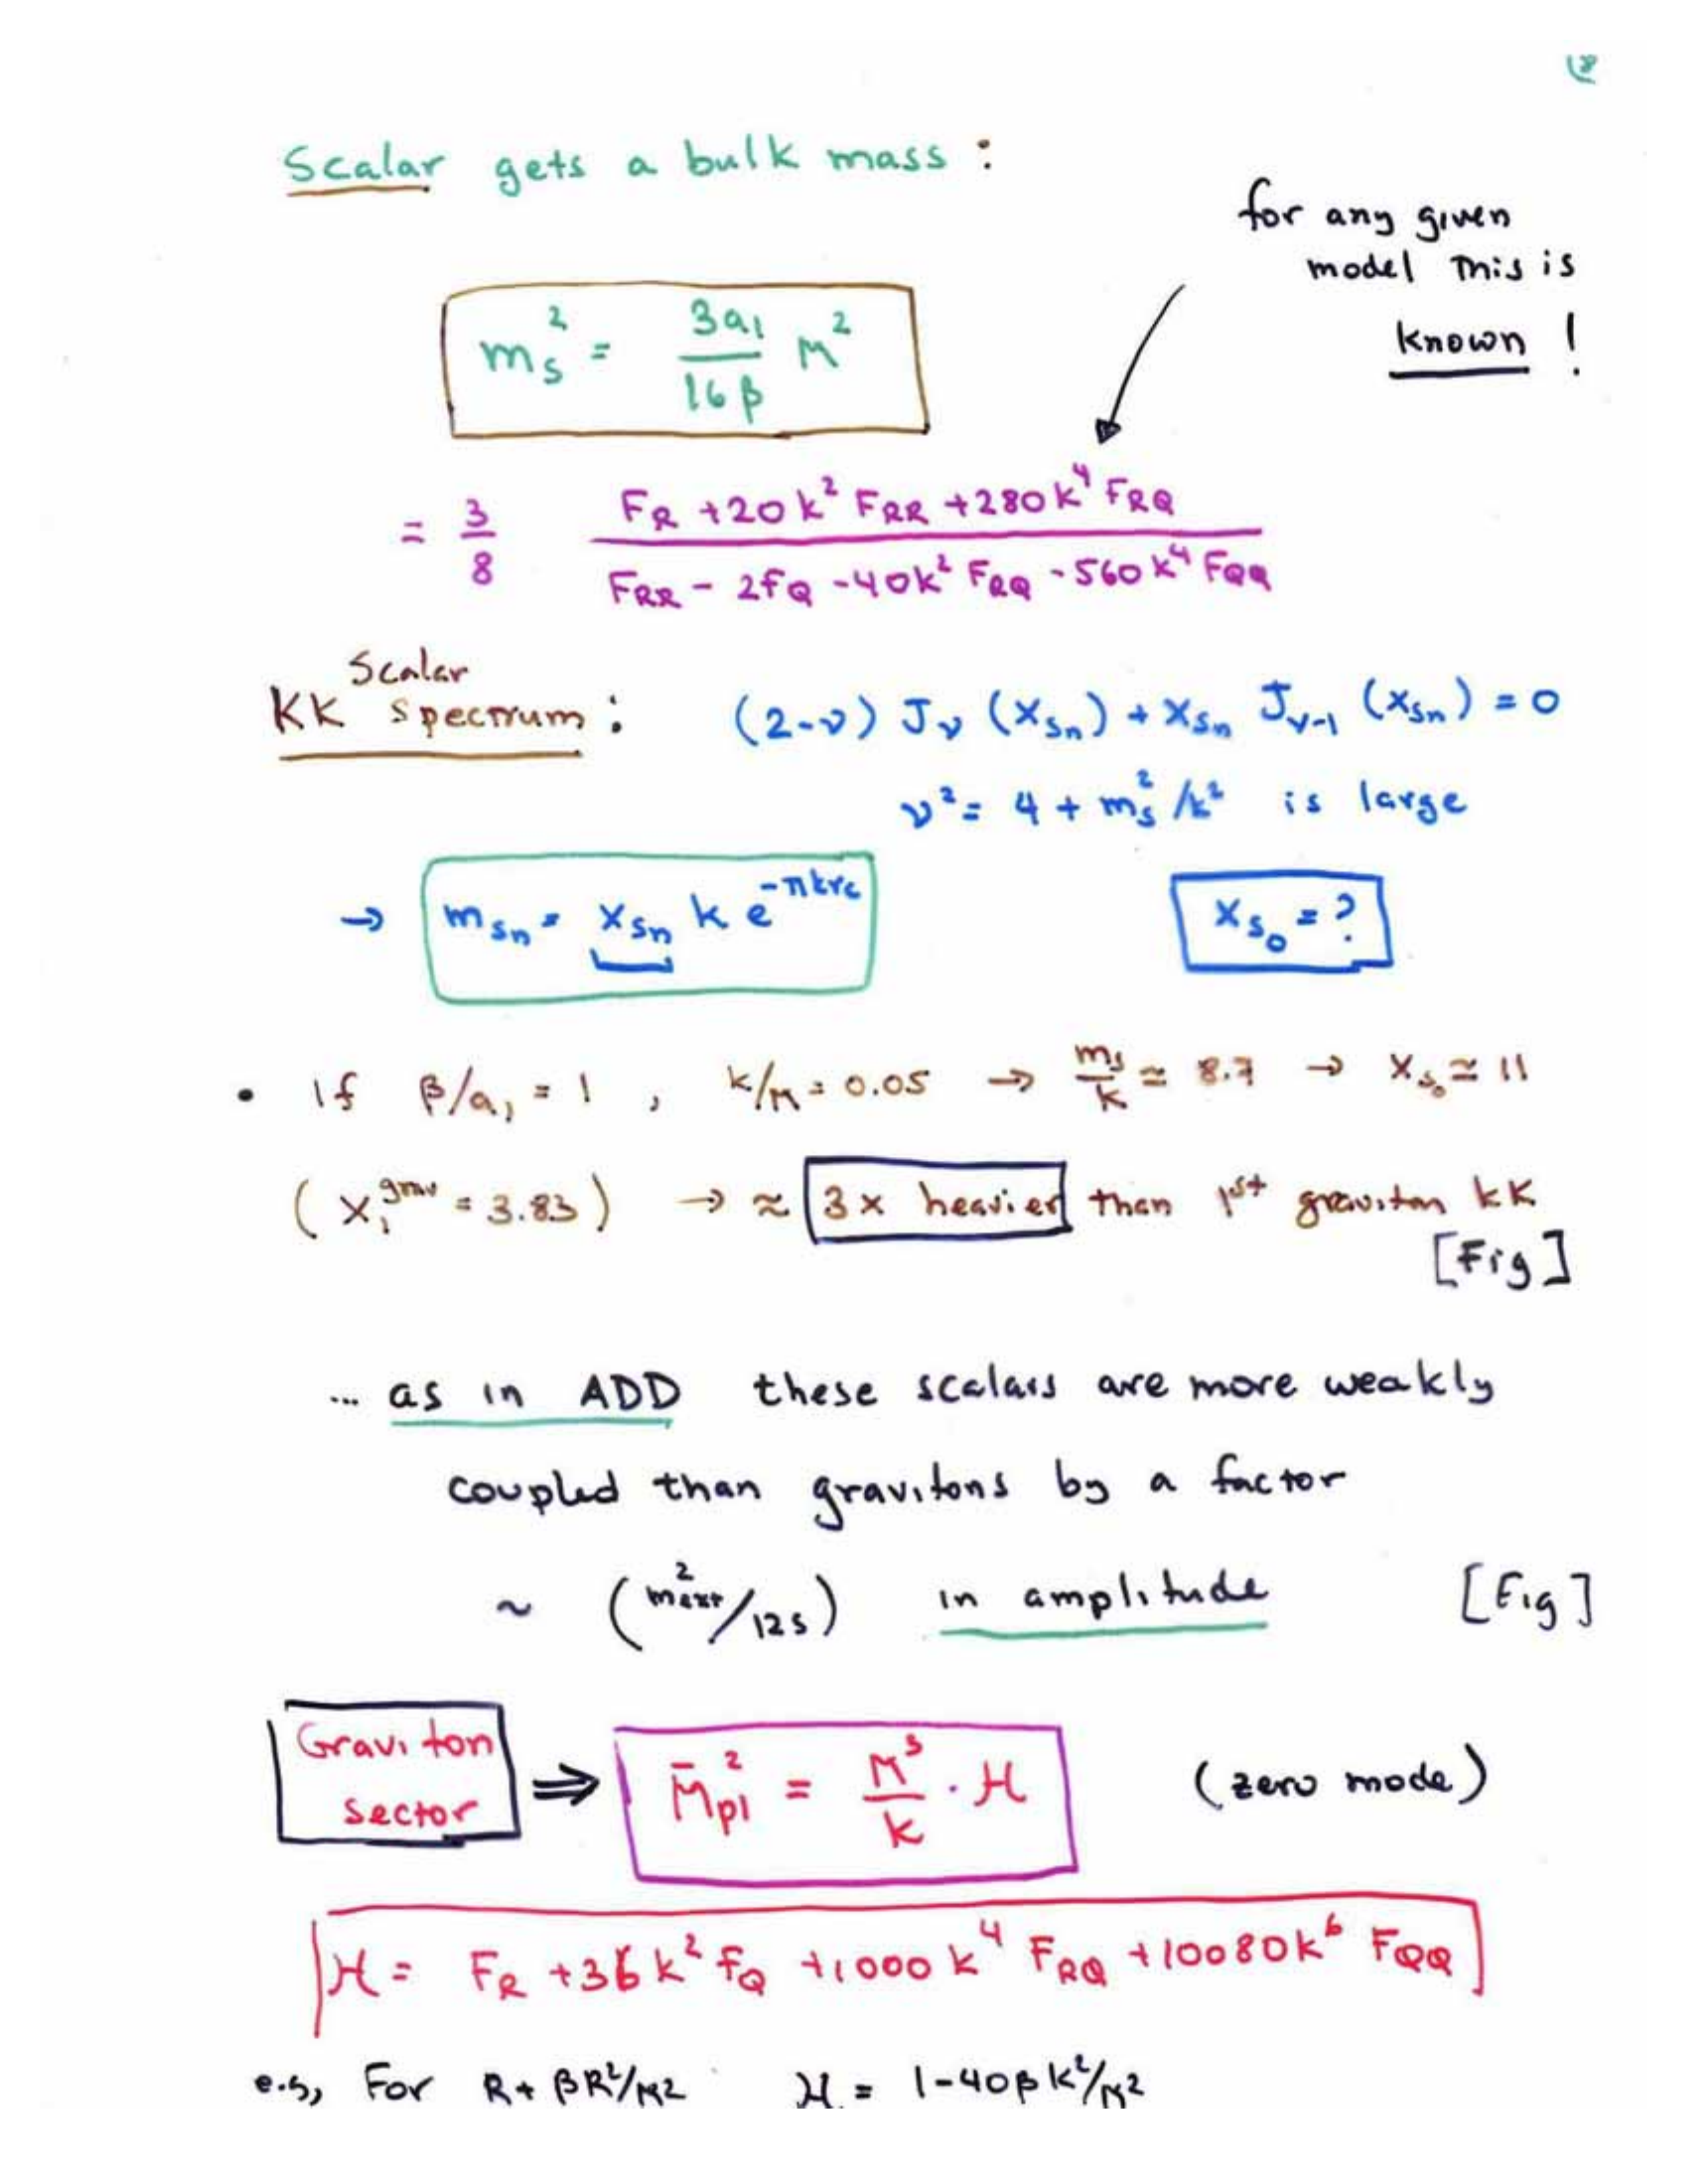 18
Scalar gets a bulk mass :
for any given
model this is
known !
m_s^2 = 3a_1/16β M^2
= 3/8 (F_R + 20k^2 F_RR + 280k^4 F_RQ)/(F_RR - 2F_Q - 40k^2 F_RQ - 560k^4 F_QQ)
Scalar
KK Spectrum : (2-ν) J_ν (x_Sn) + x_Sn J_ν-1 (x_Sn) = 0
ν^2 = 4 + m_s^2/k^2 is large
→ m_Sn = x_Sn k e^-πkrc x_S0 = ?
• If β/a_1 = 1 , k/M = 0.05 → m_s/k ≃ 8.7 → x_S0 ≃ 11
( x_1^grav = 3.83 ) → ≈ 3x heavier than 1st graviton KK
[Fig]
... as in ADD these scalars are more weakly
coupled than gravitons by a factor
~ (m_ext^2/12s) in amplitude [Fig]
Graviton
sector ⇒ M̄_pl^2 = M^3/k · H (zero mode)
H = F_R + 36k^2 F_Q + 1000k^4 F_RQ + 10080k^6 F_QQ
e.g, For R + βR^2/M^2 H = 1-40βk^2/M^2